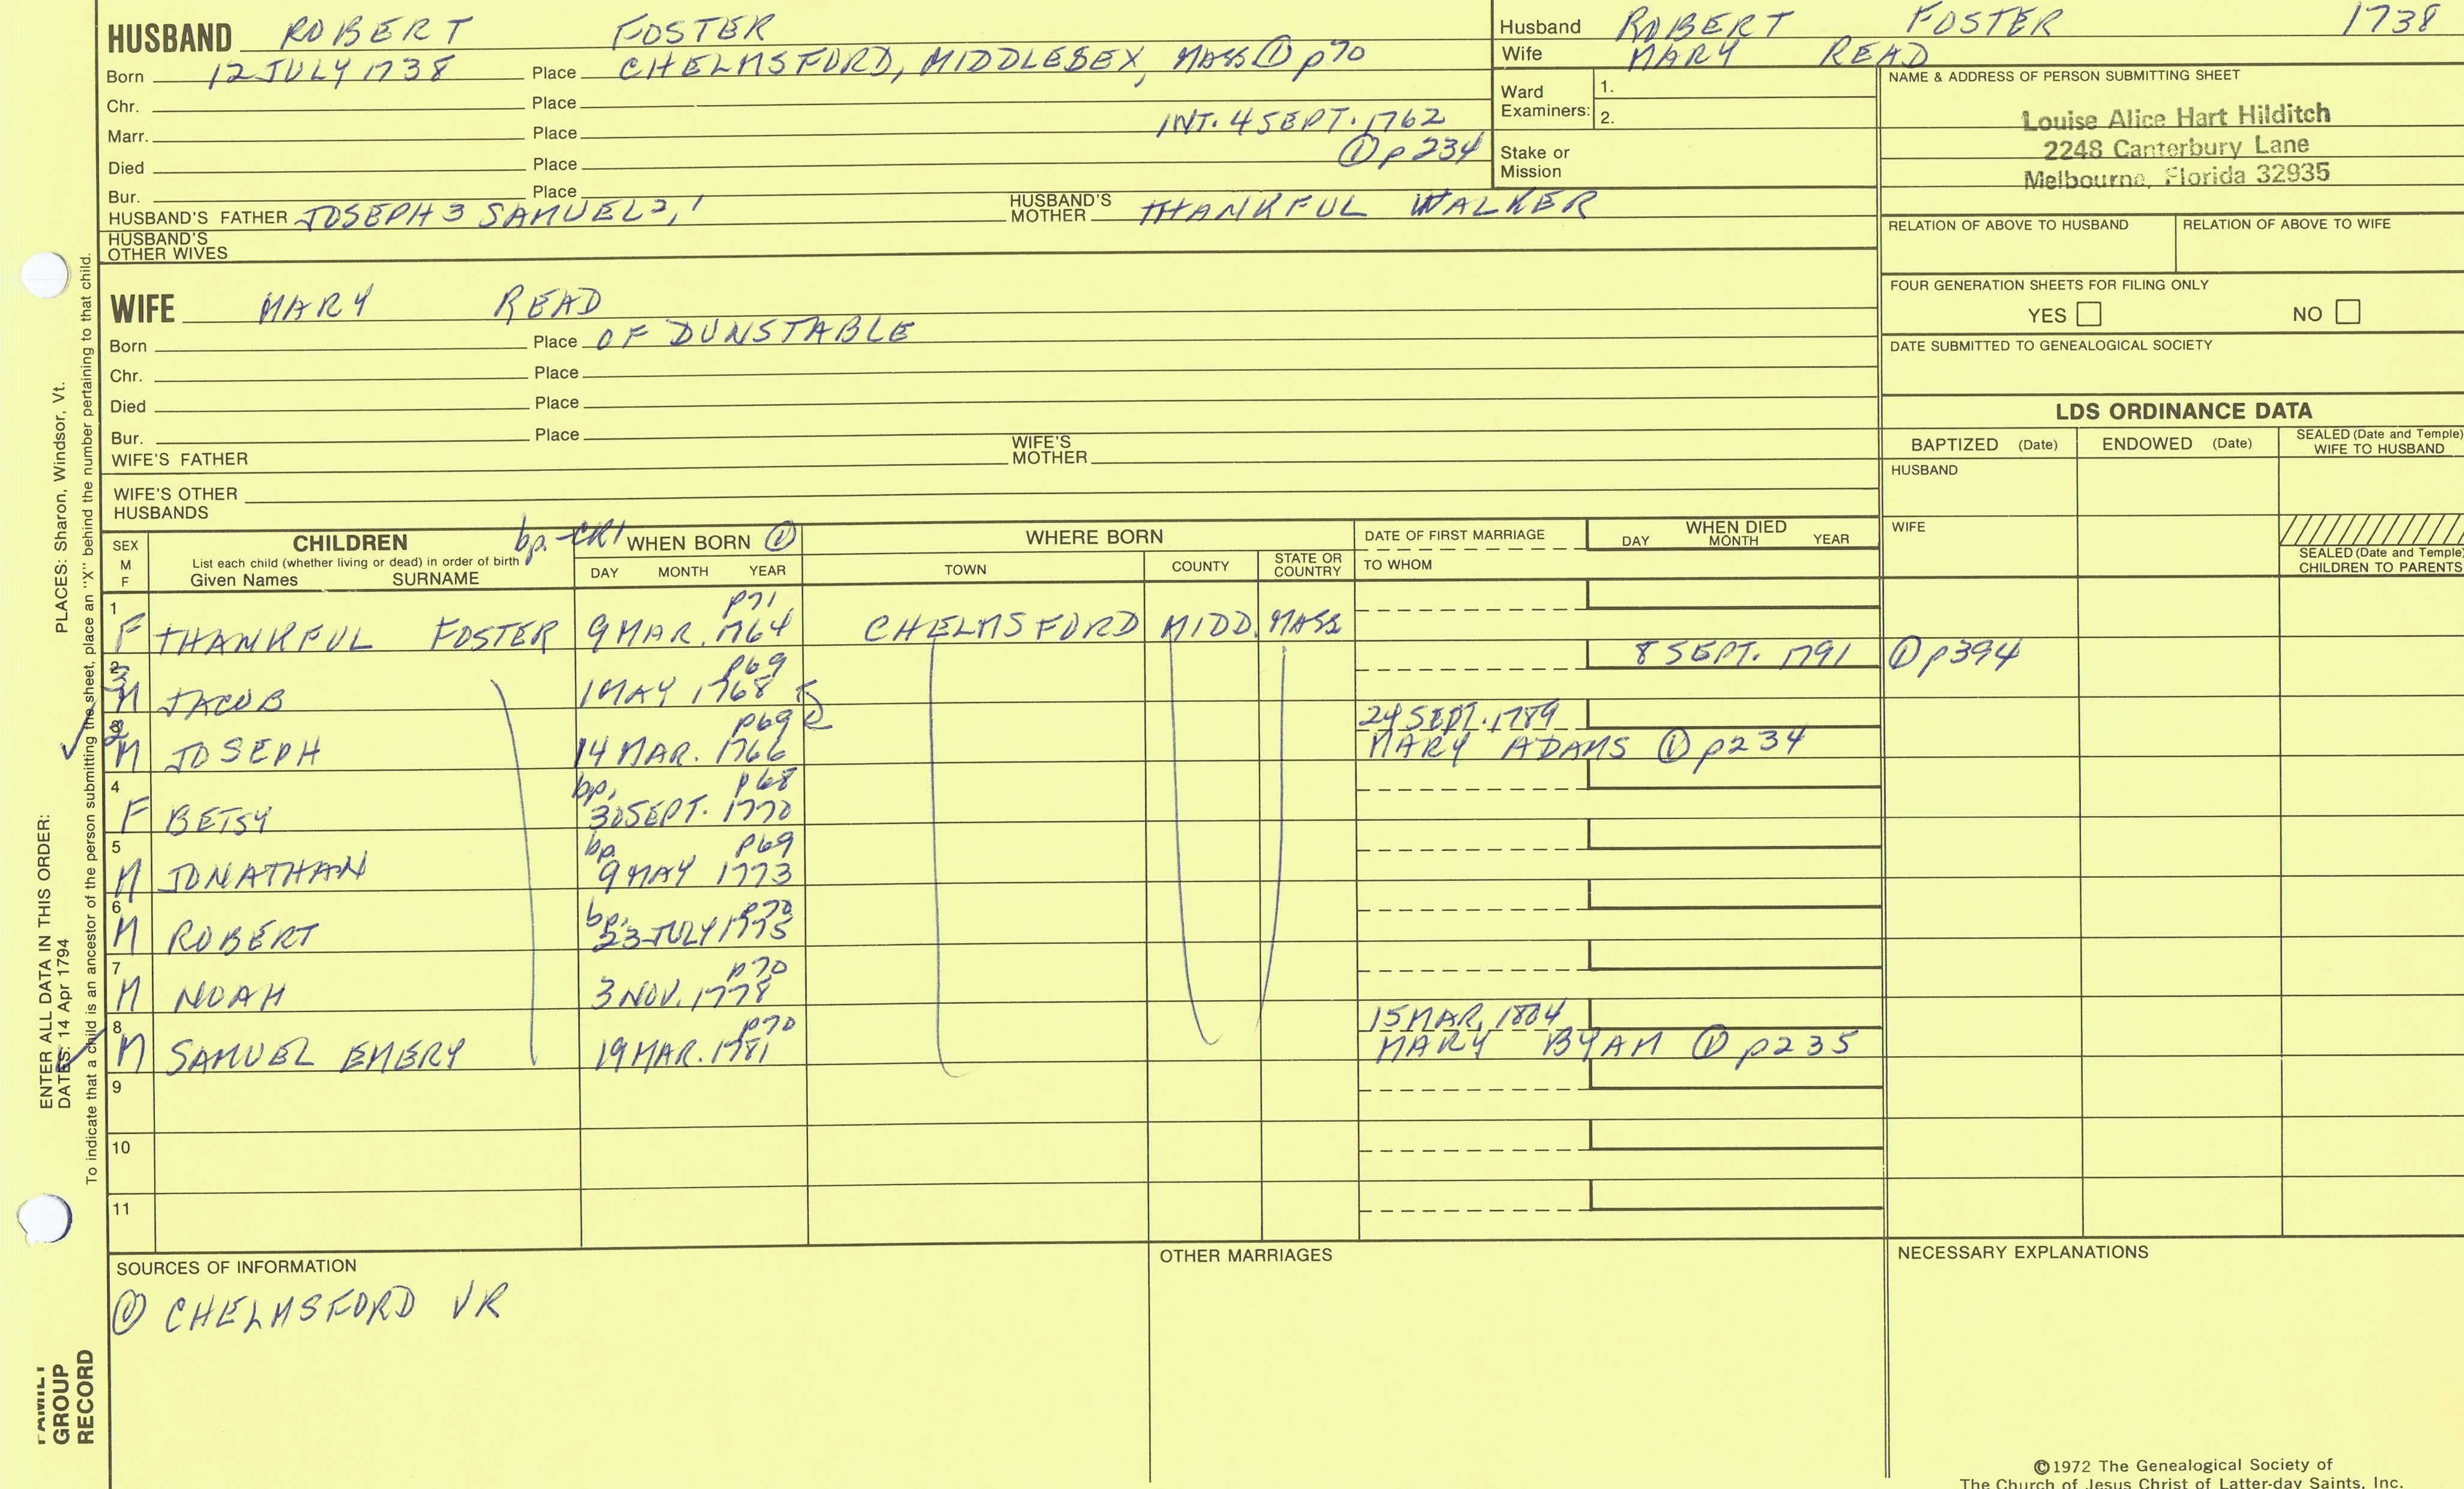 HUSBAND ROBERT FOSTER
Born 12 JULY 1738 Place CHELMSFORD, MIDDLESEX, MASS ① p70
Chr. Place
Marr. Place INT. 4 SEPT. 1762
① p234
Died Place
Bur. Place
HUSBAND'S FATHER JOSEPH 3 SAMUEL 2, 1 HUSBAND'S MOTHER THANKFUL WALKER
HUSBAND'S OTHER WIVES
Husband ROBERT FOSTER 1738
Wife MARY READ
Ward Examiners: 1.
2.
Stake or Mission
NAME & ADDRESS OF PERSON SUBMITTING SHEET
Louise Alice Hart Hilditch
2248 Canterbury Lane
Melbourne, Florida 32935
RELATION OF ABOVE TO HUSBAND RELATION OF ABOVE TO WIFE
FOUR GENERATION SHEETS FOR FILING ONLY
YES NO
DATE SUBMITTED TO GENEALOGICAL SOCIETY
WIFE MARY READ
Born Place OF DUNSTABLE
Chr. Place
Died Place
Bur. Place
WIFE'S FATHER WIFE'S MOTHER
WIFE'S OTHER HUSBANDS
LDS ORDINANCE DATA
BAPTIZED (Date) ENDOWED (Date) SEALED (Date and Temple) WIFE TO HUSBAND
HUSBAND
WIFE
SEALED (Date and Temple) CHILDREN TO PARENTS
SEX M F
CHILDREN
List each child (whether living or dead) in order of birth
Given Names SURNAME
bp. - CR1
WHEN BORN ①
DAY MONTH YEAR
WHERE BORN
TOWN COUNTY STATE OR COUNTRY
DATE OF FIRST MARRIAGE
TO WHOM
WHEN DIED
DAY MONTH YEAR
1 p71
F THANKFUL FOSTER 9 MAR. 1764 CHELMSFORD MIDD. MASS
3 p69 8 SEPT. 1791 ① p394
M JACOB 1 MAY 1768
2 p69 24 SEPT. 1789
M JOSEPH 14 MAR. 1766 MARY ADAMS ① p234
4 bp. p68
F BETSY 30 SEPT. 1770
5 bp. p69
M JONATHAN 9 MAY 1773
6 bp. p70
M ROBERT 23 JULY 1775
7 p70
M NOAH 3 NOV. 1778
8 p70 15 MAR. 1804
M SAMUEL EMERY 19 MAR. 1781 MARY BYAM ① p235
9
10
11
SOURCES OF INFORMATION
① CHELMSFORD VR
OTHER MARRIAGES
NECESSARY EXPLANATIONS
©1972 The Genealogical Society of
The Church of Jesus Christ of Latter-day Saints, Inc.
ENTER ALL DATA IN THIS ORDER:
DATES: 14 Apr 1794 PLACES: Sharon, Windsor, Vt.
To indicate that a child is an ancestor of the person submitting the sheet, place an "X" behind the number pertaining to that child.
FAMILY
GROUP
RECORD